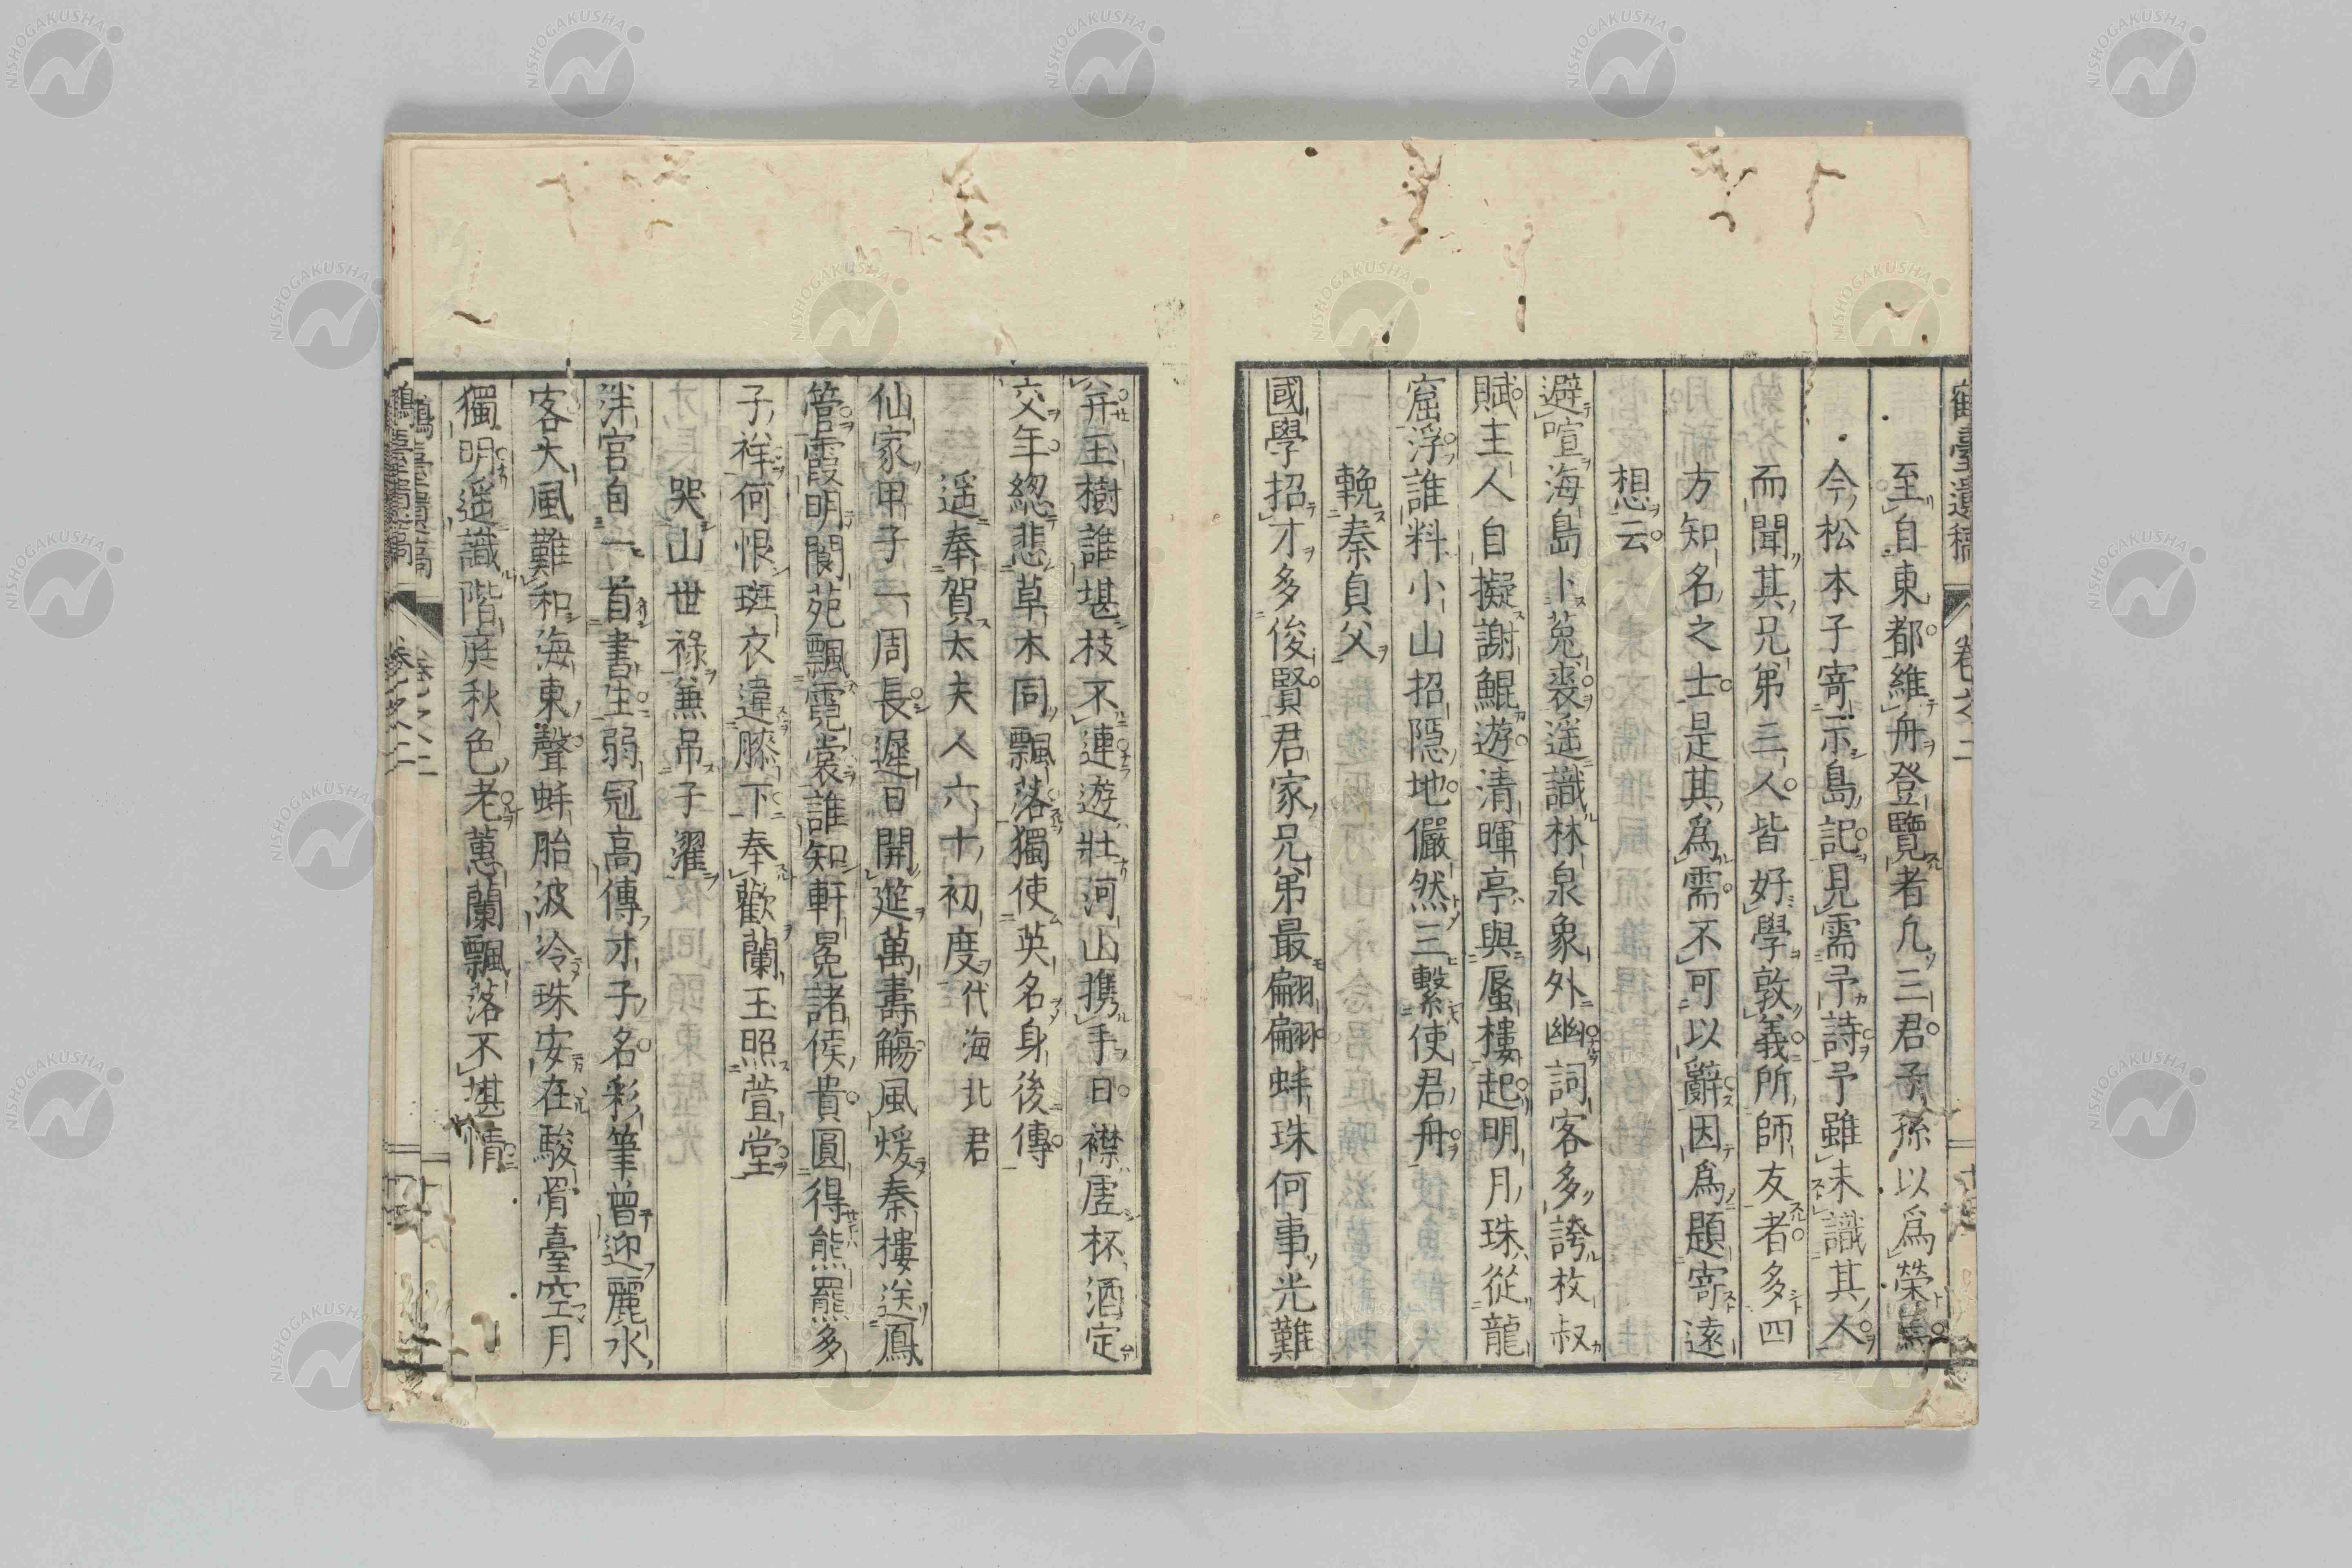 至自東都維舟登覽者凡三君子孫以爲榮焉
今松本子寄示島記見需予詩予雖未識其人
而聞其兄弟三人皆好學敦義所師友者多四
方知名之士是其爲需不可以辭因爲題寄遠
想云
避喧海島卜菟裘遥識林泉象外幽詞客多誇枚叔
賦主人自擬謝鯤遊清暉亭與蜃樓起明月珠從龍
窟浮誰料小山招隱地儼然三繫使君舟
輓秦貞父
國學招才多俊賢君家兄弟最翩翩蚌珠何事光難
弁玉樹誰堪枝不連遊壯河山携手日襟虛杯酒定
交年緫悲草木同飄落獨使英名身後傳
遥奉賀太夫人六十初度代海北君
仙家甲子一周長遲日開筵萬壽觴風煖秦樓送鳳
管霞明閬苑飄霓裳誰知軒冕諸侯貴圓得熊羆多
子祥何恨斑衣違膝下奉歡蘭玉照萱堂
哭山世祿兼吊子濯
泮宮自一首書生弱冠高傳才子名彩筆曾迎麗水
客大風難和海東聲蚌胎波冷珠安在駿骨臺空月
獨明遥識階庭秋色老蕙蘭飄落不堪情
鶴臺遺稿
卷之二
鶴臺遺稿
卷之二
NISHOGAKUSHA